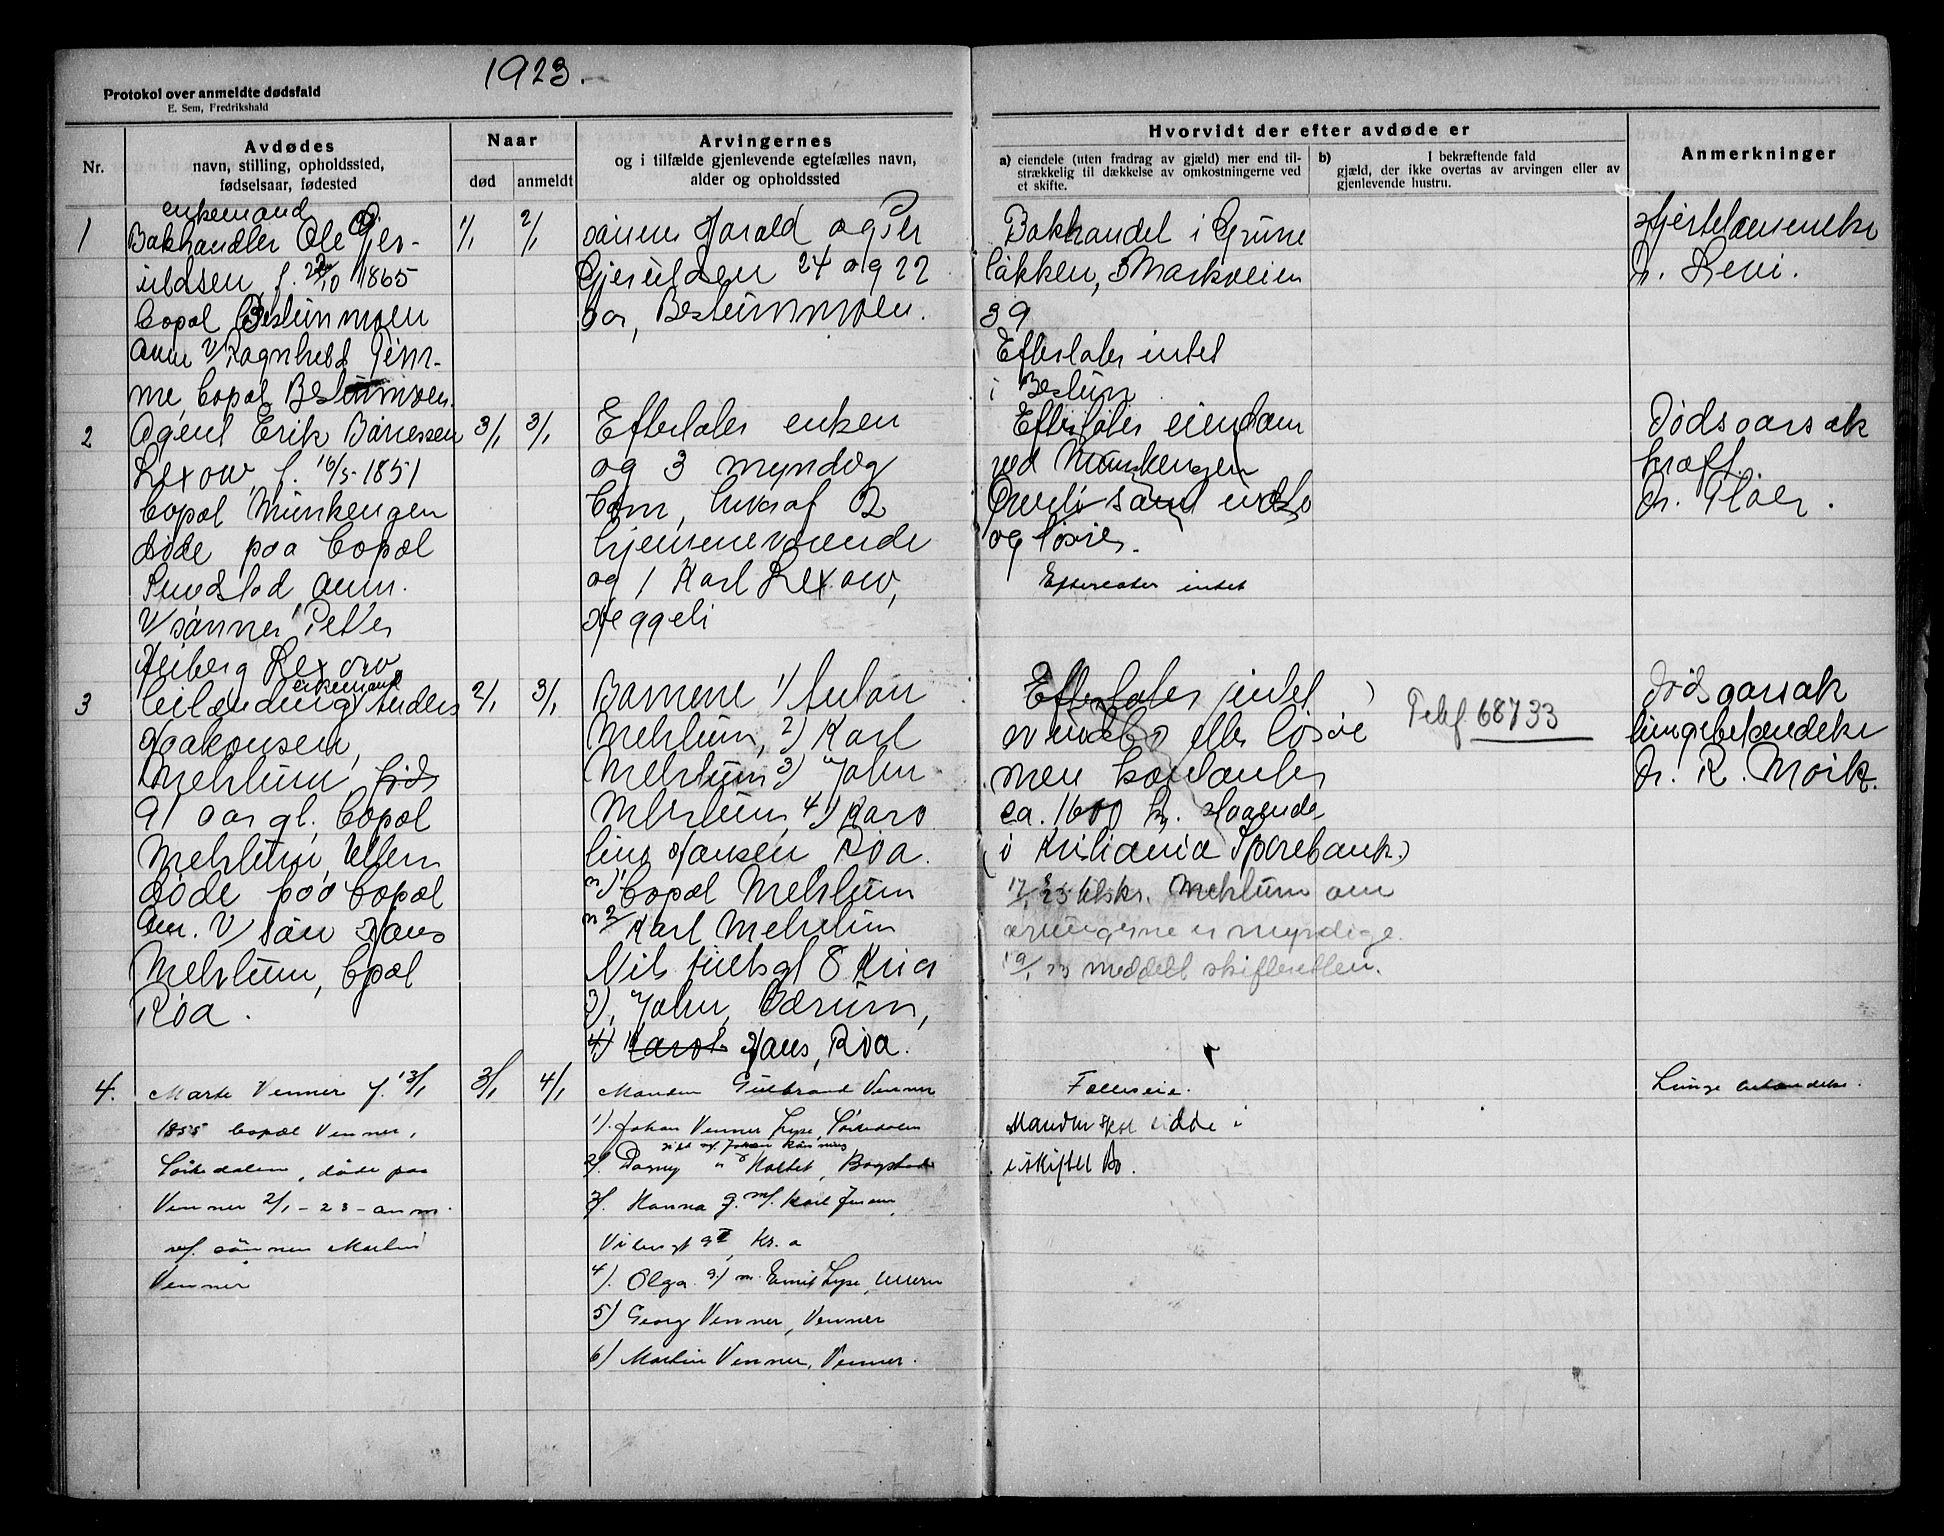 1923.
Protokol over anmeldte dødsfald
E. Sem, Fredrikshald
Nr.
Avdødes
navn, stilling, opholdssted,
fødselsaar, fødested
Naar
død
anmeldt
Arvingernes
og i tilfælde gjenlevende egtefælles navn,
alder og opholdssted
Hvorvidt der efter avdøde er
a) eiendele (uten fradrag av gjæld) mer end til-
strækkelig til dækkelse av omkostningerne ved
et skifte.
b) I bekræftende fald
gjæld, der ikke overtas av arvingen eller av
gjenlevende hustru.
Anmerkninger
1
enkemand
Bokhandler Ole Gjer-
uldsen, f. 22/10 1865
bopæl Bestummoen
anm v/ Ragnhild
me, bopæl Bestummoen.
1/1
2/1
sønnene Harald og Per
Gjeruldsen 24 og 22
aar, Bestummoen.
Bokhandel i Grüne
løkken, Markveien
39
Efterlater intet
i Bestum
Hjertelammelse
Dr. Levi.
2
Agent Erik Børressen
Lexow, f. 16/5-1851
bopæl Munkengen
døde paa bopæl
anm.
v/ sønnen Petter
Heiberg Lexow
3/1
3/1
Efterlater enken
og 3 myndig
barn, hvorav 2
hjemmeværende
og 1 Karl Lexow,
Heggeli
Efterlater eiendom
ved Munkengen
Øvreli samt indbo
og løsøre.
Efterlater intet
Dødsaarsak
kræft.
Dr. Fløer.
3
enkemand
Anders
Haakonsen,
Mehlum, født
91 aar gl. bopæl
Mehlum, Ullern
døde paa bopæl
Anm. v/ søn Hans
Mehlum, bopæl
Røa.
2/1
3/1
Barnene 1) Anton
Mehlum, 2) Karl
Mehlum 3) John
Mehlum, 4) Karo
line Hansen Røa.
1) bopæl Mehlum
2) Karl Mehlum
Nils Juelsgt 8 Kria
3), John, Bærum,
4) Karol Hans, Røa.
Efterlater intet
av indbo eller løsøre
men kontanter
ca. 1600 kr. staaende
(i Kristiania Sparebank.)
17/1 23 tilskr. Mehlum om
arvingerne er myndige.
19/1 23 meddelt skifteretten.
Telef 68733
Dødsaarsak
lungebetændelse
Dr. R. Mork.
4.
Marte Venner f. 13/1
1855 bopæl Venner,
Sørkedalen, døde paa
Venner 2/1-23-anm.
v/ sønnen Martin
Venner
3/1
4/1
Manden Gulbrand Venner
1). Johan Venner Lyse, Sørkedalen
2). Dagny Bogstad
3). Hanna g. m/. Karl Jensen,
Kr.a
4). Olga g/ m. Emil Lyse, Ullern
5) Georg Venner, Venner
6) Martin Venner, Venner.
Fælleseie.
Manden skal sidde i
uskiftet bo.
Lunge betændelse.